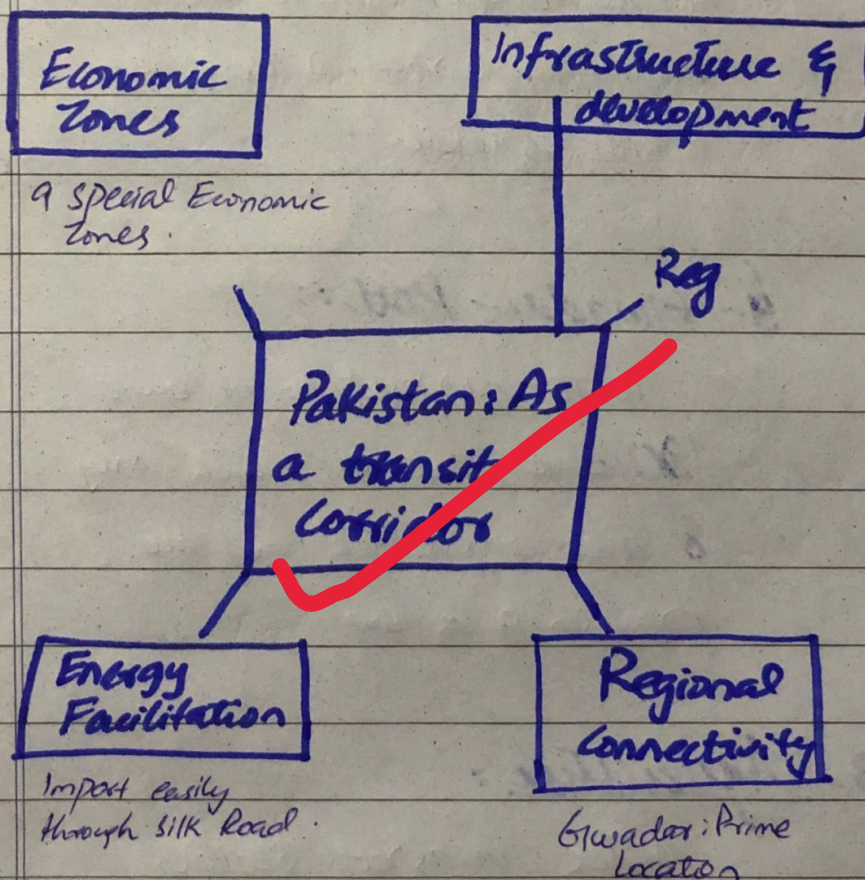 Economic
Zones
9 special Economic
Zones.
Infrastructure &
development
Reg
Pakistan: As
a transit
Corridor
Energy
Facilitation
Import easily
through Silk Road.
Regional
Connectivity
Gwadar: Prime
Location